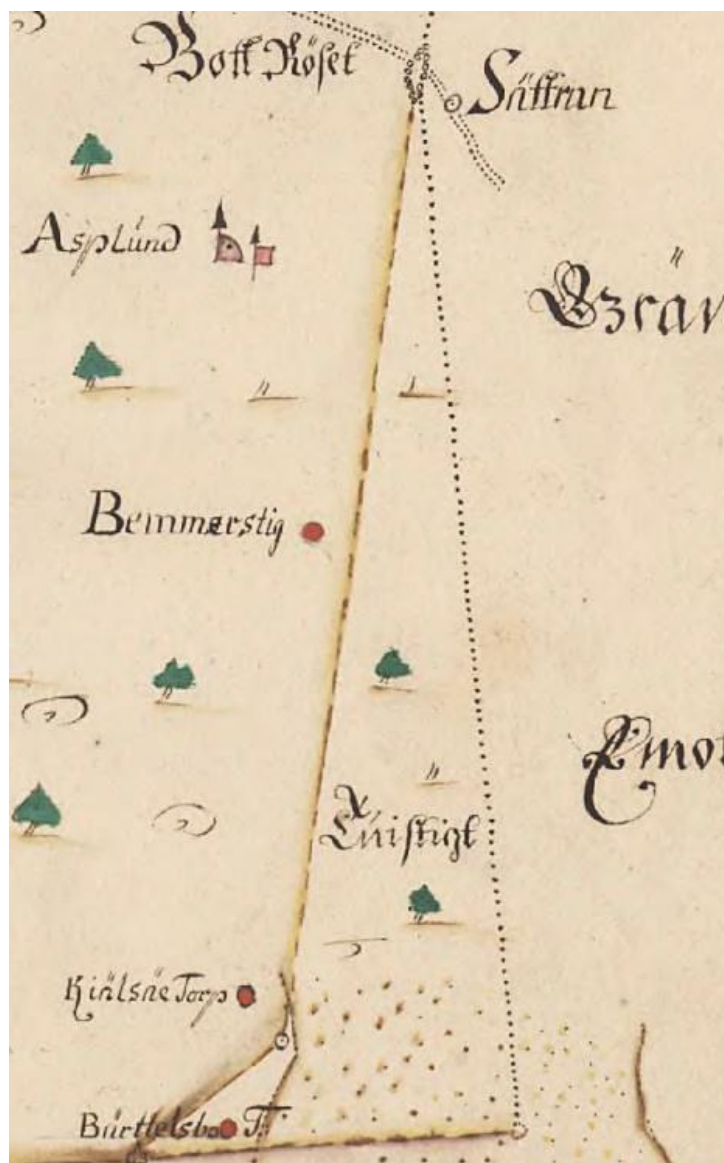 Bott Röset
Säffran
Asplund
Bemmerstig
Luistigt
Kiälsäe Torp
Bärttelsbo T: